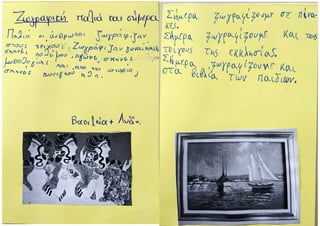 Ζωγραφική παλιά και σήμερα
Παλιά οι άνθρωποι ζωγράφιζαν
στους τοίχους. Ζωγράφιζαν
σκηνές πολέμου, αγώνες, σκηνές
μυθολογίας και από την ιστορία,
σκηνές κυνηγιού κλπ.
Βασιλεία + Λυδία.
Σήμερα ζωγραφίζουμε σε πίνα-
κες.
Σήμερα ζωγραφίζουμε και τους
τοίχους της εκκλησίας.
Σήμερα ζωγραφίζουμε και
στα βιβλία των παιδιών.